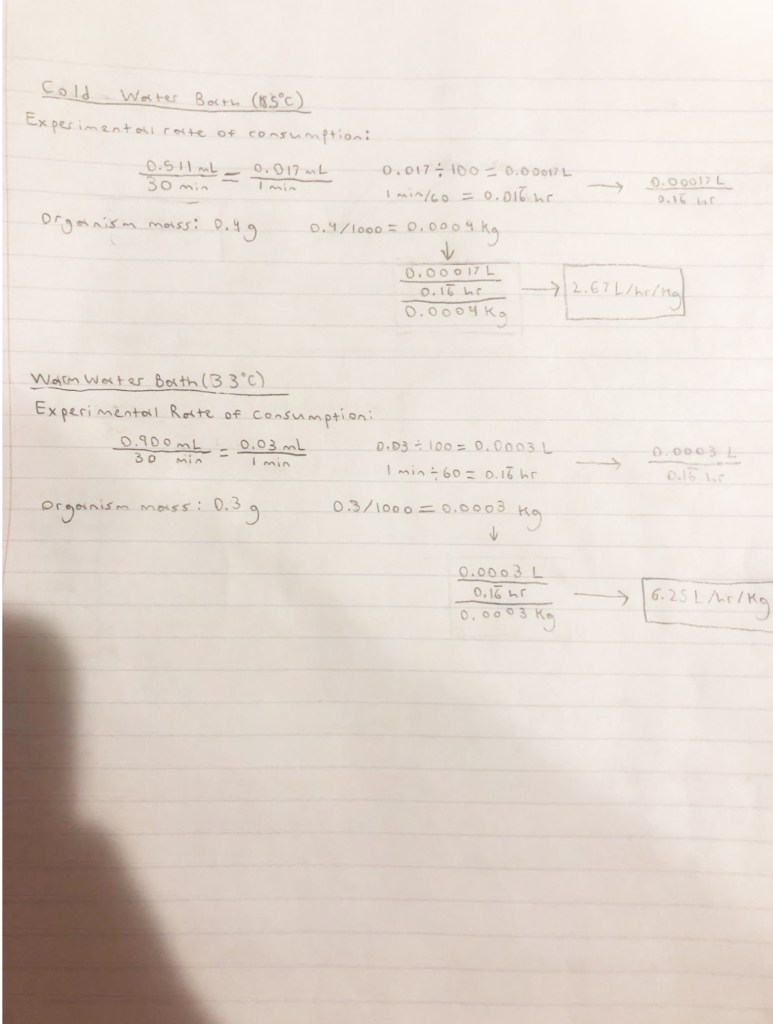 Cold Water Bath (15°C)
Experimental rate of consumption:
0.511 mL / 30 min = 0.017 mL / 1 min
0.017 ÷ 100 = 0.00017 L
1 min/60 = 0.016̅ hr
→ 0.00017 L / 0.16̅ hr
Organism mass: 0.4 g
0.4/1000 = 0.0004 Kg
↓
0.00017 L / 0.16̅ hr / 0.0004 Kg → 2.67 L/hr/Kg
Warm Water Bath (33°C)
Experimental Rate of consumption:
0.900 mL / 30 min = 0.03 mL / 1 min
0.03 ÷ 100 = 0.0003 L
1 min ÷ 60 = 0.16̅ hr
→ 0.0003 L / 0.16̅ hr
Organism mass: 0.3 g
0.3/1000 = 0.0003 Kg
↓
0.0003 L / 0.16̅ hr / 0.0003 Kg → 6.25 L/hr/Kg